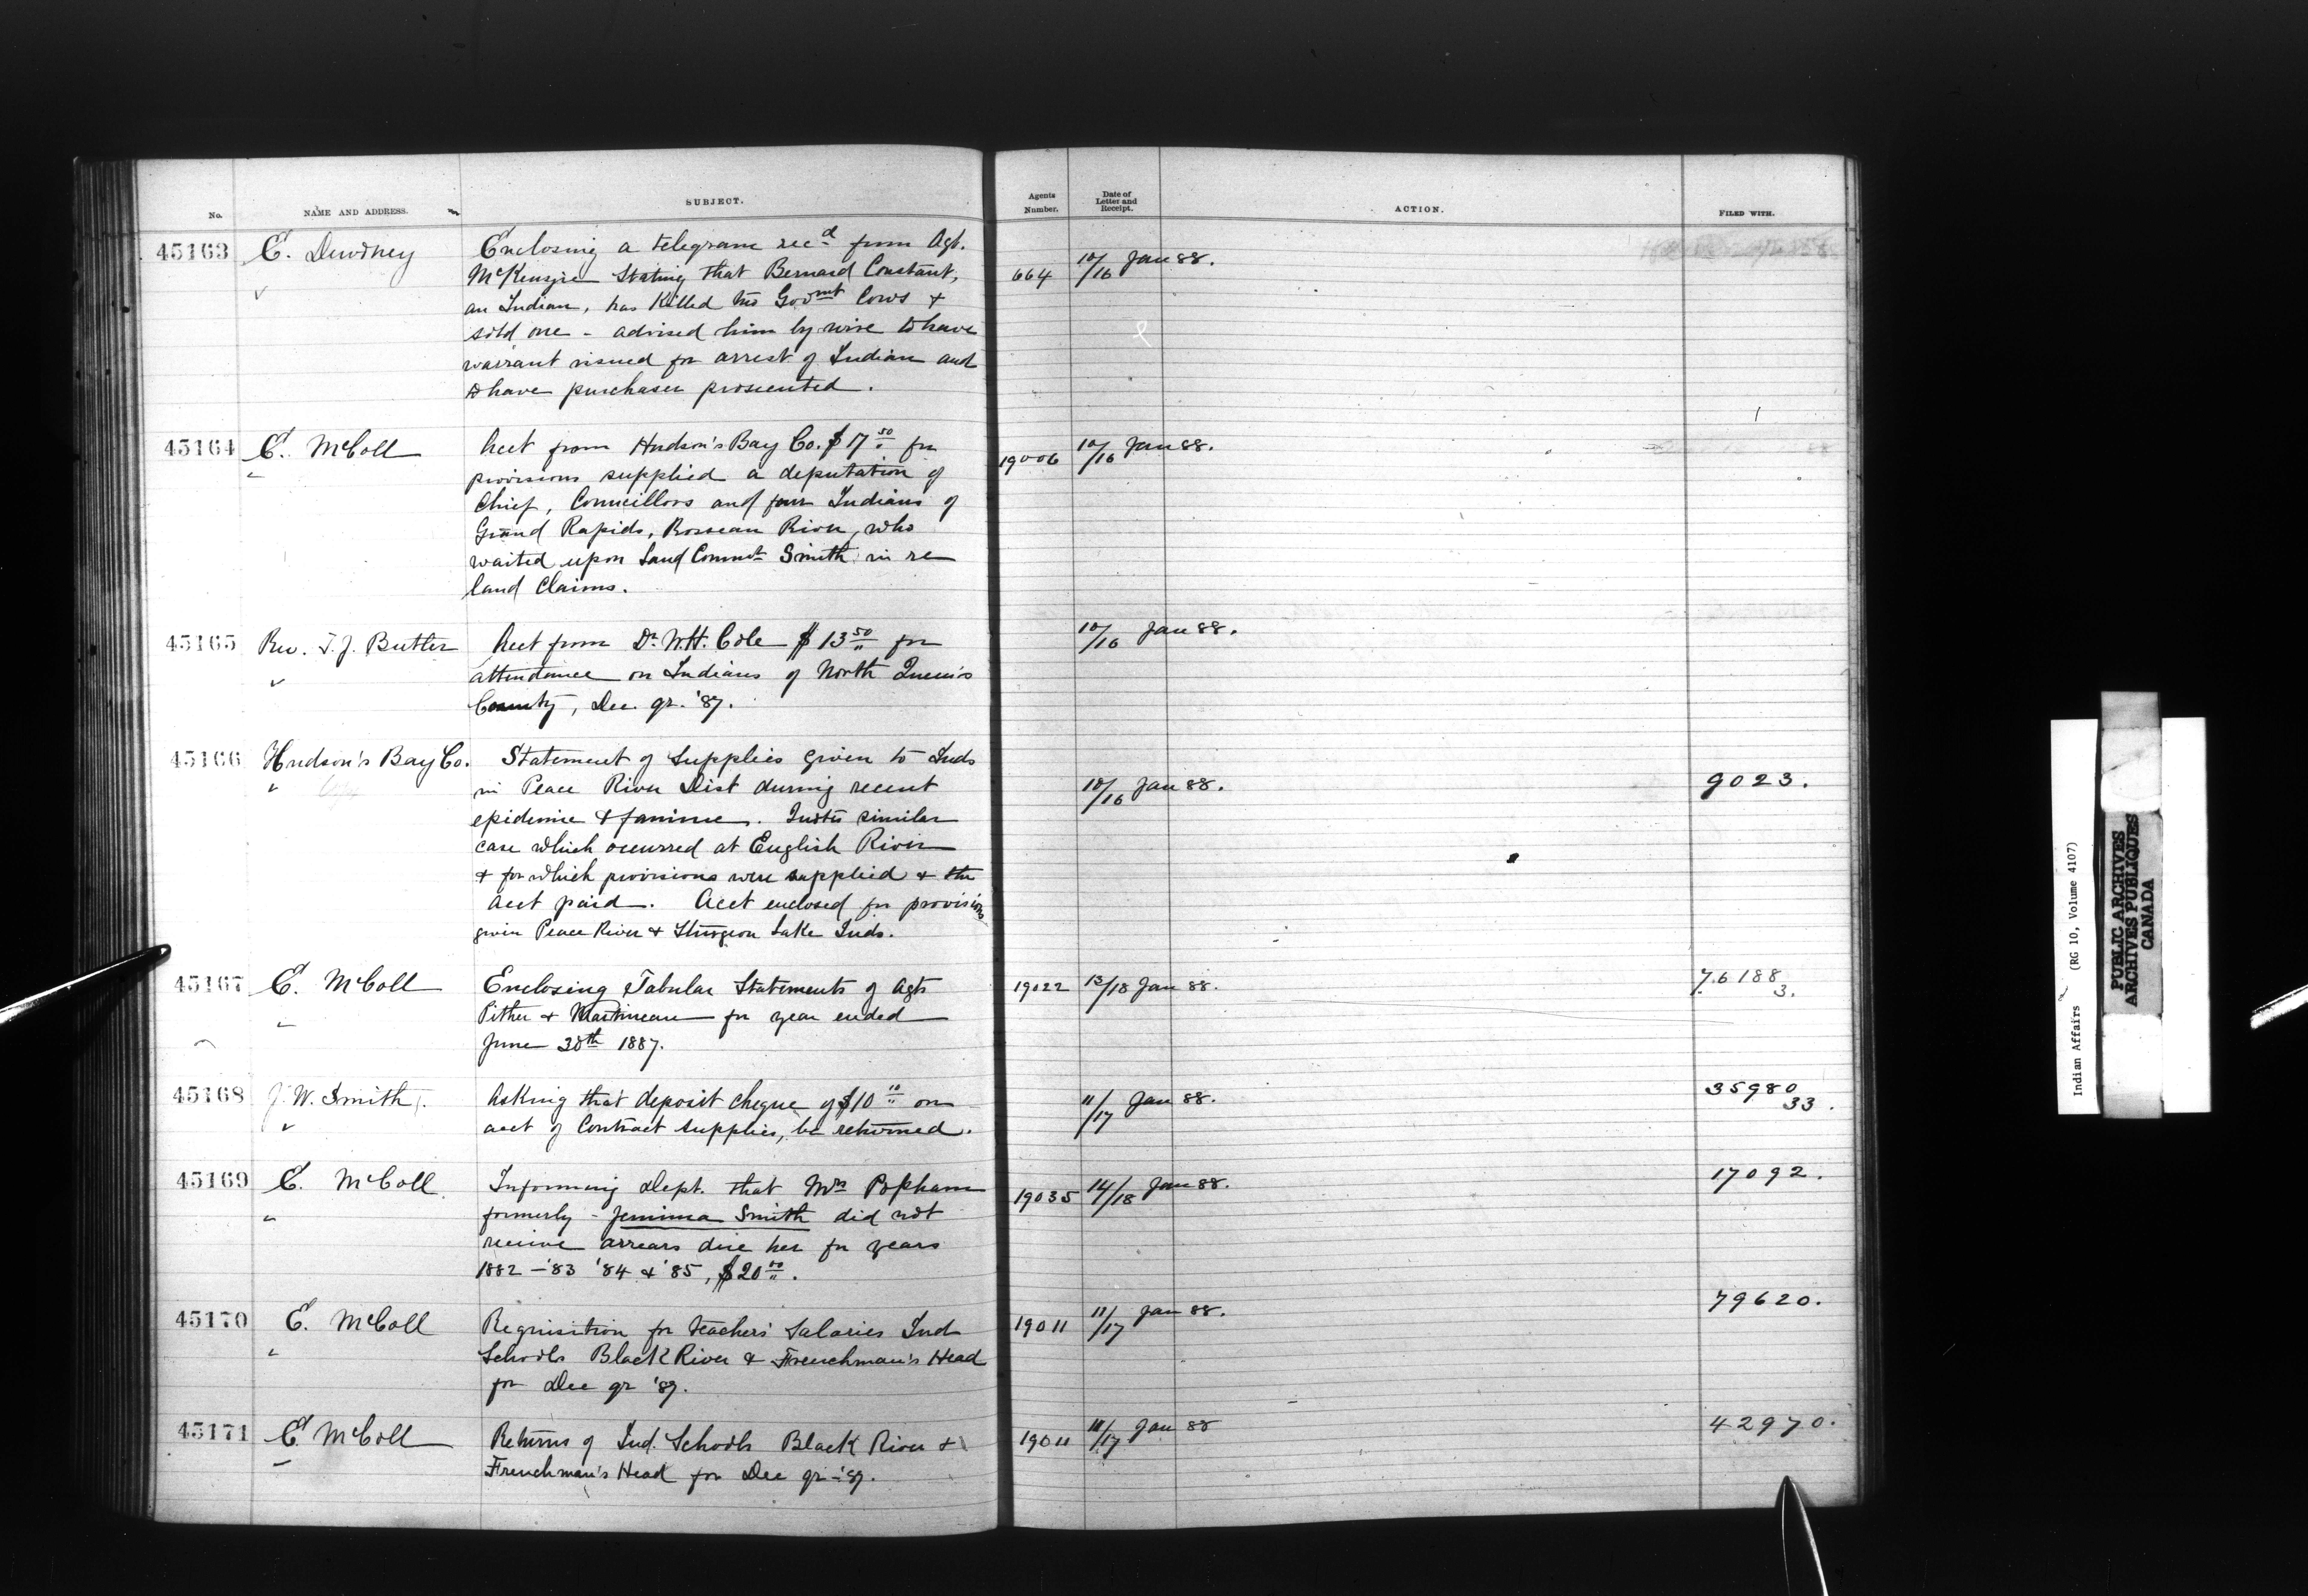 No. NAME AND ADDRESS. SUBJECT. Agents Number. Date of Letter and Receipt. ACTION. FILED WITH.
45163 E. Dewdney Enclosing a telegram recd from Agt.
McKenzie Stating that Bernard Constant, 664 10/16 Jan 88.
an Indian, has Killed two Govmt Cows +
sold one - advised him by wire to have
warrant issued for arrest of Indian and
to have purchaser prosecuted.
45164 E. McColl Acct from Hudson's Bay Co. $17 50 for 19006 10/16 Jan 88.
provisions supplied a deputation of
Chief, Councillors and four Indians of
Grand Rapids, Roseau River, who
waited upon Land Commr Smith in re
land Claims.
45165 Rev. T. J. Butler Acct from Dr W.H. Cole $13 50 for 10/16 Jan 88.
attendance on Indians of North Queen's
County, Dec. qr. '87.
45166 Hudson's Bay Co. Statement of Supplies given to Inds
in Peace River Dist during recent 10/16 Jan 88. 9023.
epidemic + famine. similar
case which occurred at English River
+ for which provisions were supplied + the
acct paid. Acct enclosed for provisions
given Peace River + Sturgeon Lake Inds.
45167 E. McColl Enclosing Tabular Statements of Agts 19022 13/18 Jan 88. 76188
Pither + Martineau for year ended 3.
June 30th 1887.
45168 J. W. Smith. Asking that deposit cheque of $10 10 on 11/17 Jan 88. 35980
acct of Contract Supplies, be returned. 33.
45169 E. McColl. Informing Dept. that Mrs Popham 19035 14/18 Jan 88. 17092.
formerly - Jemima Smith did not
receive arrears due her for years
1882 - '83 '84 + '85, $20 00.
45170 E. McColl Requisition for teachers' Salaries Ind 19011 11/17 Jan 88. 79620.
Schools Black River & Frenchman's Head
for Dec qr '87.
45171 E. McColl Returns of Ind. Schools Black River + 19011 11/17 Jan 88 42970.
Frenchman's Head for Dec qr - '87.
Indian Affairs (RG 10, Volume 4107)
PUBLIC ARCHIVES
ARCHIVES PUBLIQUES
CANADA